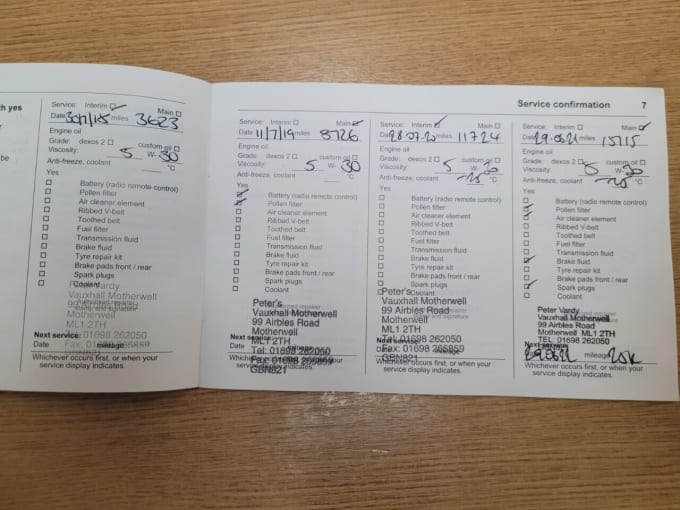 Service confirmation 7
th yes
be
Service: Interim Main
Date 30/7/18 miles 3623
Engine oil
Grade: dexos 2 custom oil
Viscosity: 5 W- 30
Anti-freeze, coolant °C
Yes
Battery (radio remote control)
Pollen filter
Air cleaner element
Ribbed V-belt
Toothed belt
Fuel filter
Transmission fluid
Brake fluid
Tyre repair kit
Brake pads front / rear
Spark plugs
Coolant
Peter Vardy
Vauxhall Motherwell
Motherwell
ML1 2TH
Next service: Tel: 01698 262050
Date mileage
Whichever occurs first, or when your
service display indicates.
Service: Interim Main
Date 11/7/19 miles 8726
Engine oil
Grade: dexos 2 custom oil
Viscosity: 5 W- 30
Anti-freeze, coolant °C
Yes
Battery (radio remote control)
Pollen filter
Air cleaner element
Ribbed V-belt
Toothed belt
Fuel filter
Transmission fluid
Brake fluid
Tyre repair kit
Brake pads front / rear
Spark plugs
Coolant
Peter's
Vauxhall Motherwell
99 Airbles Road
Motherwell
Next service ML1 2TH
Date Tel: 01698 262050
Fax: 01698 265859
Whichever occurs first, or when your
service display indicates.
GBN821
Service: Interim Main
Date 28.07.20 miles 11724
Engine oil
Grade: dexos 2 custom oil
Viscosity: 5 W- 30
Anti-freeze, coolant -25 °C
Yes
Battery (radio remote control)
Pollen filter
Air cleaner element
Ribbed V-belt
Toothed belt
Fuel filter
Transmission fluid
Brake fluid
Tyre repair kit
Brake pads front / rear
Spark plugs
Coolant
Peter's
Vauxhall Motherwell
99 Airbles Road
Motherwell
ML1 2TH
Next service: Tel: 01698 262050
Fax: 01698 265859
GBN821
Whichever occurs first, or when your
service display indicates.
Service: Interim Main
Date 29.06.21 miles 15115
Engine oil
Grade: dexos 2 custom oil
Viscosity: 5 W- 30
Anti-freeze, coolant -25 °C
Yes
Battery (radio remote control)
Pollen filter
Air cleaner element
Ribbed V-belt
Toothed belt
Fuel filter
Transmission fluid
Brake fluid
Tyre repair kit
Brake pads front / rear
Spark plugs
Coolant
Peter Vardy
Vauxhall Motherwell
99 Airbles Road
Motherwell ML1 2TH
TEL: 01698 262050
Next service
mileage 25k
Whichever occurs first, or when your
service display indicates.